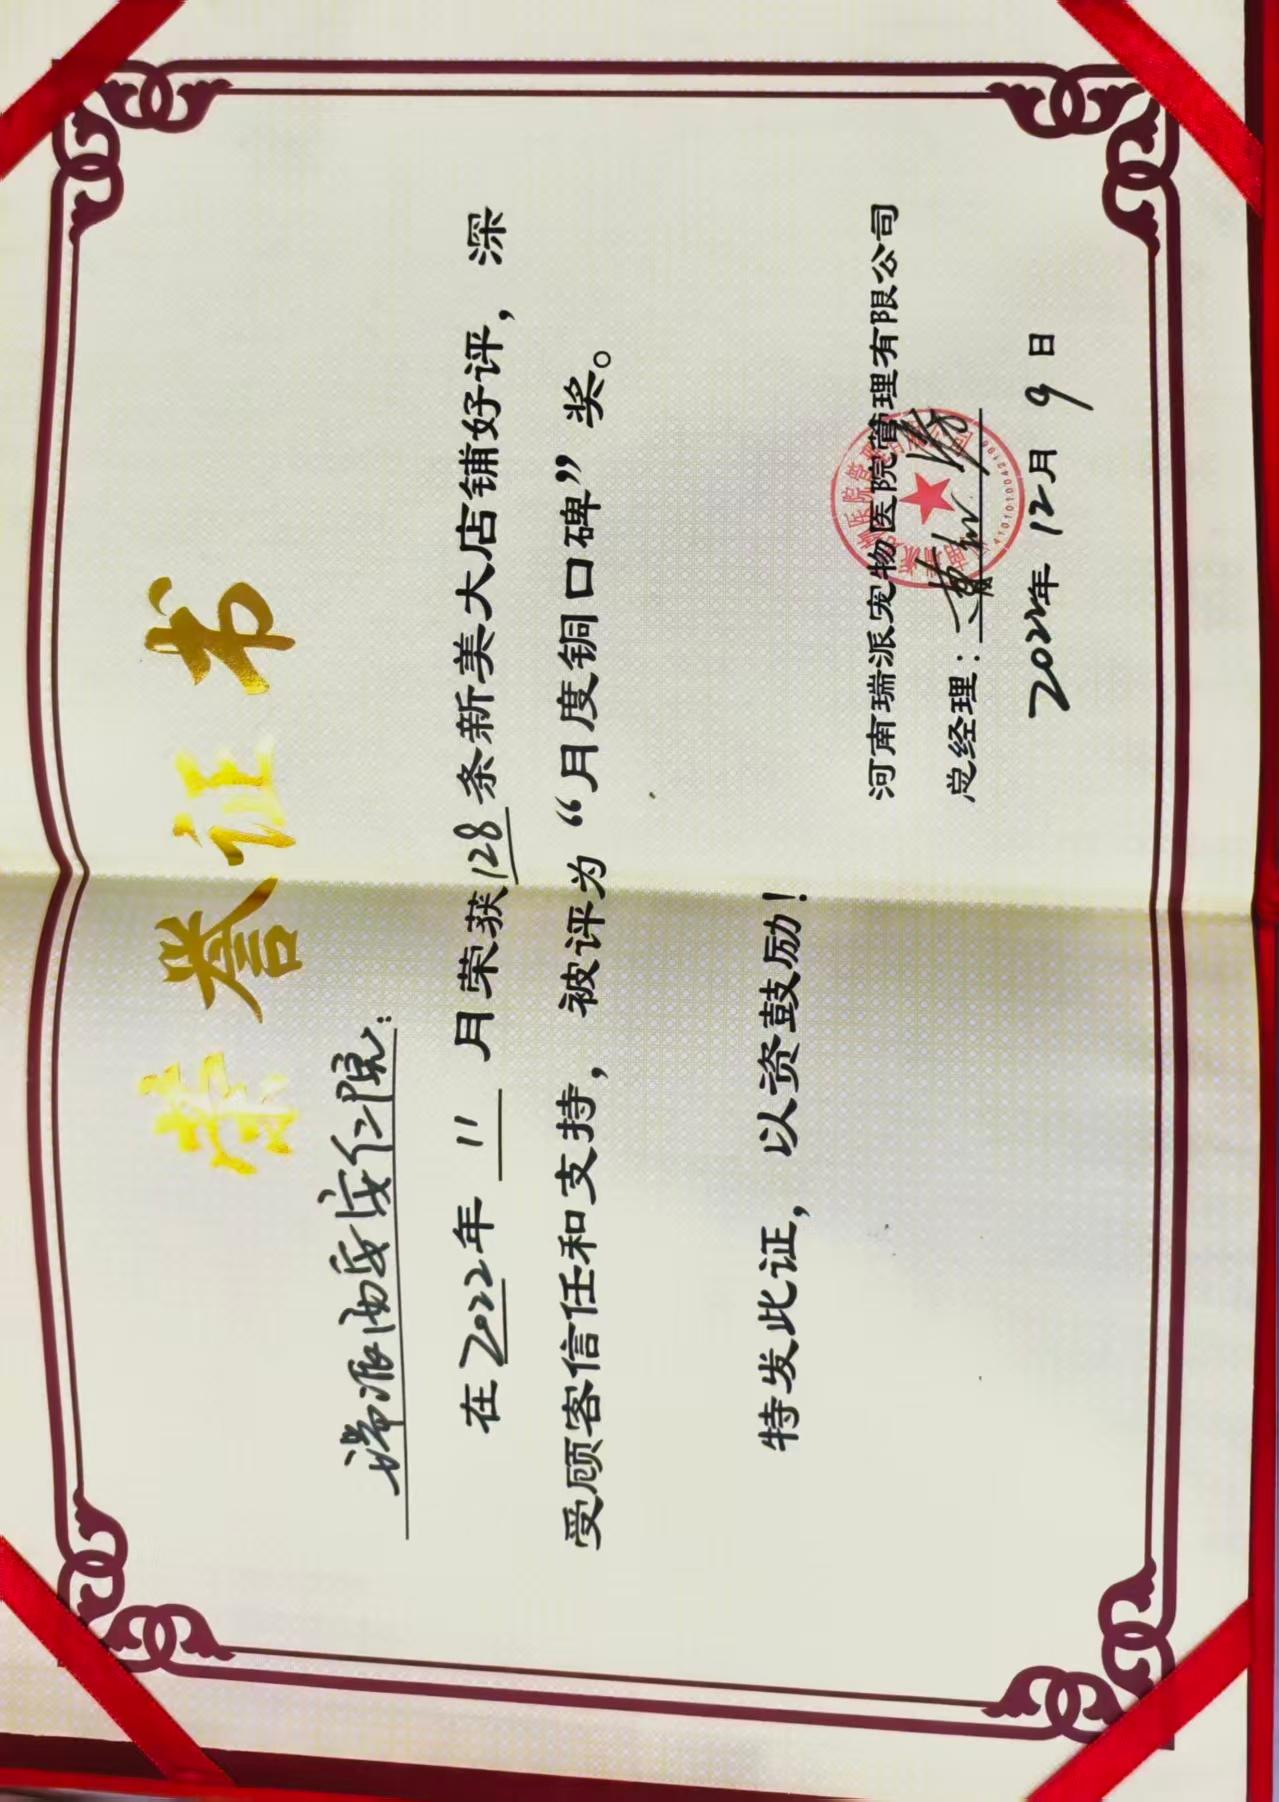 荣誉证书
瑞派西安安仁院：
在2022年11月荣获128条新美大店铺好评，深
受顾客信任和支持，被评为“月度铜口碑”奖。
特发此证，以资鼓励！
河南瑞派宠物医院管理有限公司
总经理：
2022年12月9日